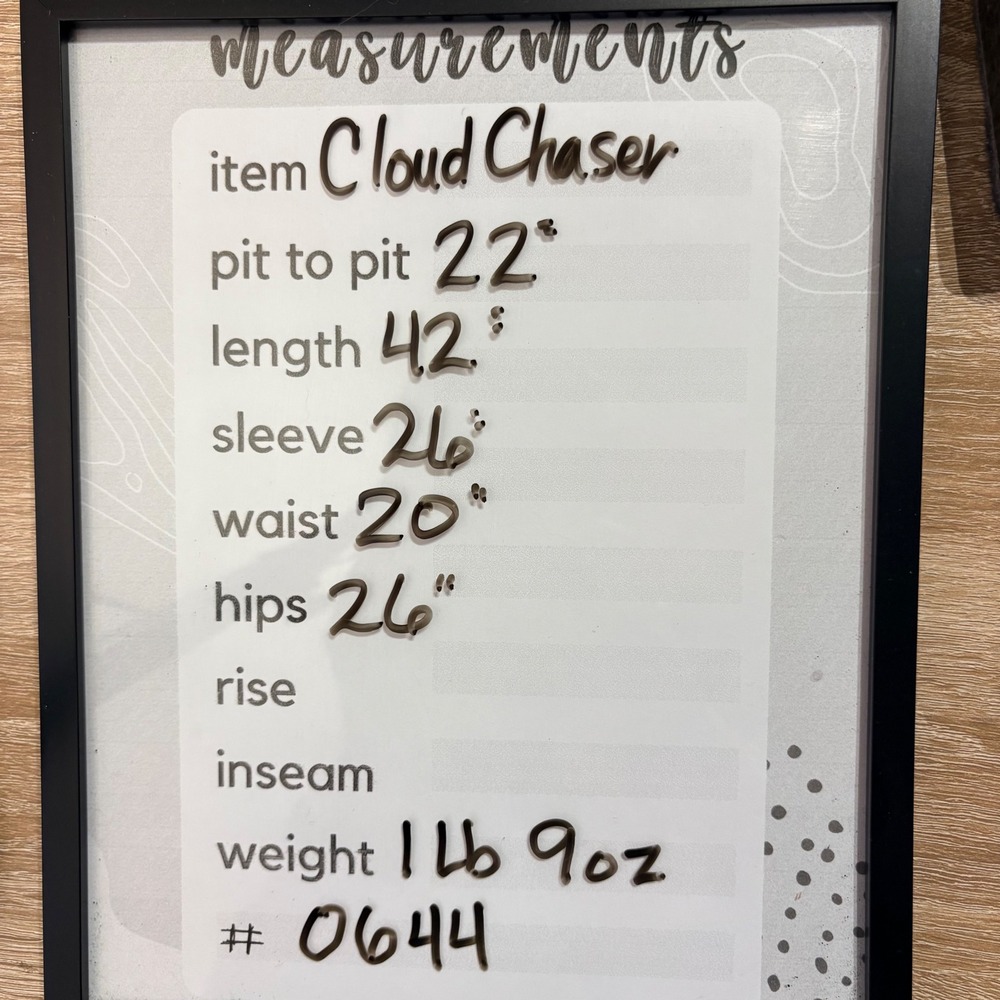 measurements
item Cloud Chaser
pit to pit 22"
length 42"
sleeve 26"
waist 20"
hips 26"
rise
inseam
weight 1 Lb 9oz
# 0644